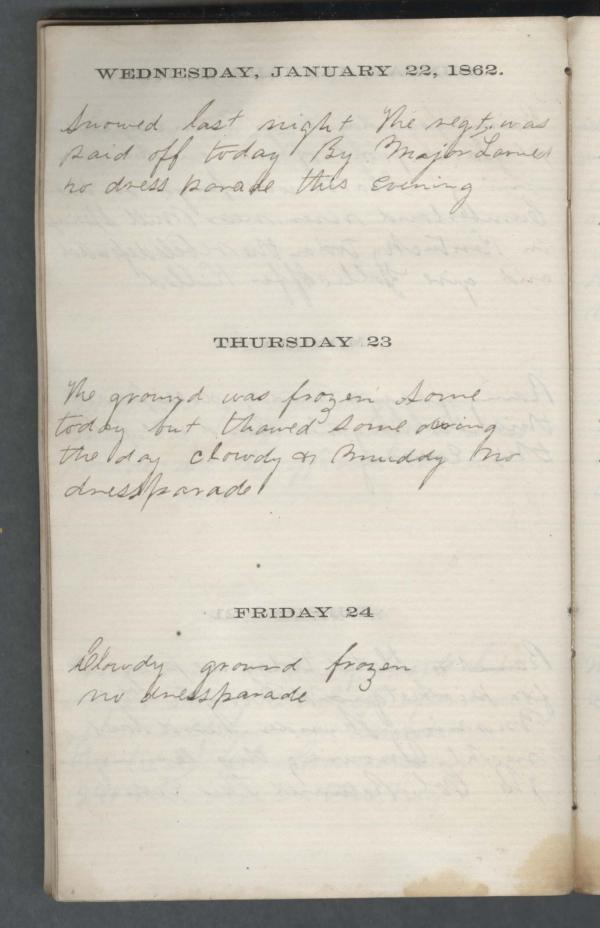 WEDNESDAY, JANUARY 22, 1862.
Snowed last night The regt. was
paid off today By Major
no dress parade this evening
THURSDAY 23
The ground was frozen some
today but thawed some
the day clowdy & muddy no
dressparade
FRIDAY 24
Clowdy ground frozen
no dressparade